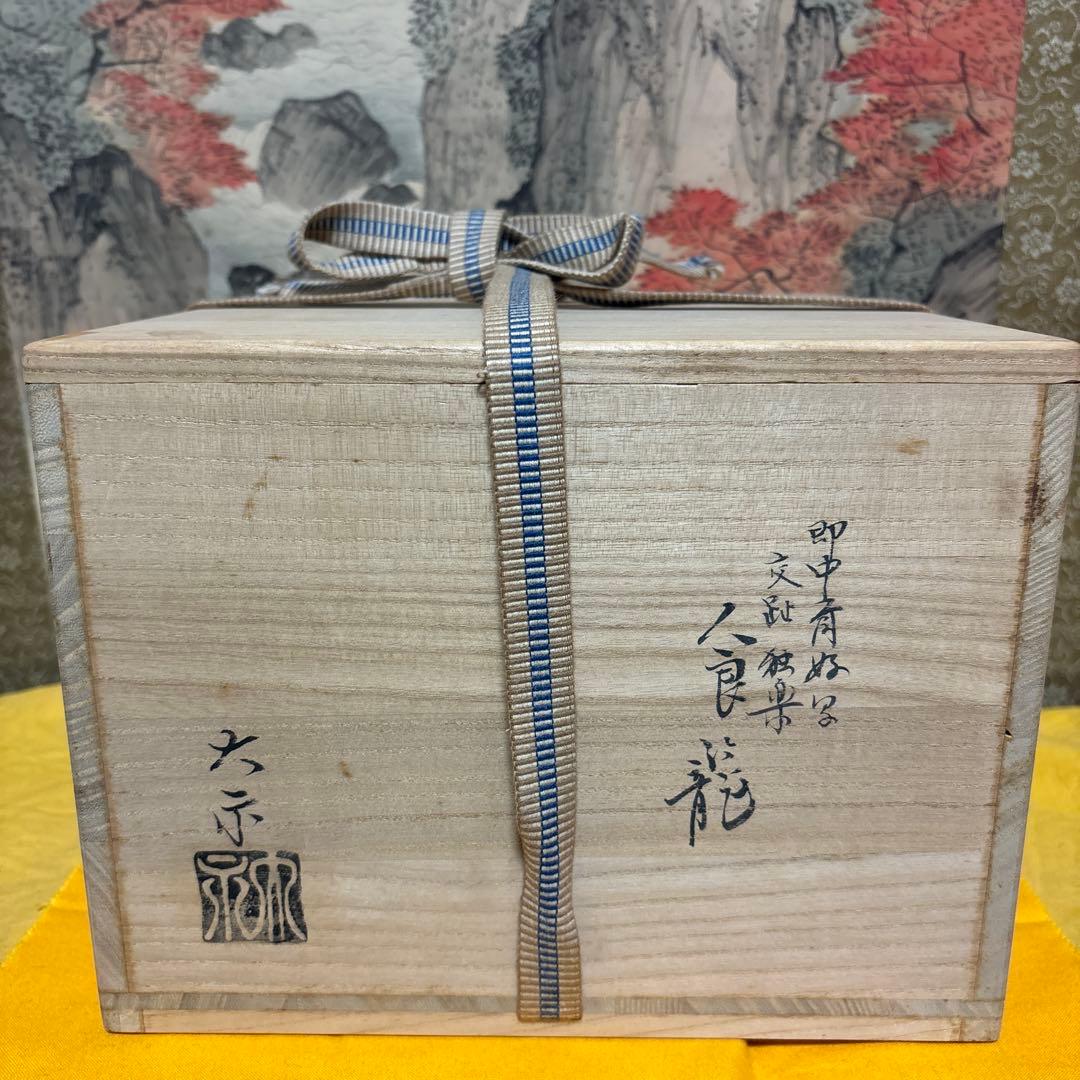 即中斎好写
交趾 独楽
食籠
大示